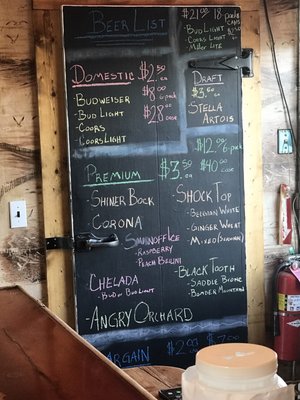 Beer List
$21.95 18 pack
CANS
-Bud Light
-Coors Light
-Miller Lite
Domestic $2.50 ea
$8.00 6-pack
$28.00 case
-Budweiser
-Bud Light
-Coors
-Coors Light
Draft
$3.50
-Stella
Artois
Premium $3.50 ea
$12.% 6-pack
$40.00 case
-Shiner Bock
-Corona
-Smirnoff Ice
-Raspberry
-Peach Bellini
-Shock Top
-Belgian White
-Ginger Wheat
-Black Tooth
-Saddle Bronc
-Bomber Mountain
Chelada
-Bud or Bud Light
-Angry Orchard